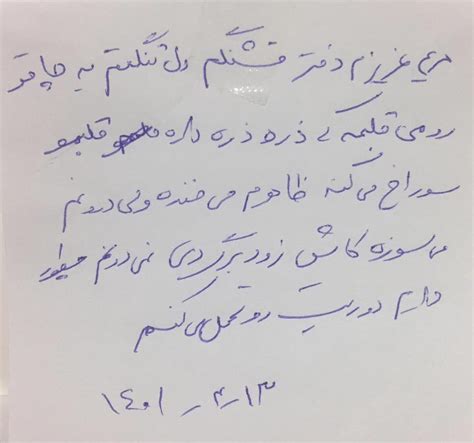 مریم عزیزم دختر قشنگم دل تنگتم یه چاقو
روی قلبمه کی ذره ذره داره قلبمو
سوراخ می کنه ظاهرم می خنده ولی درونم
می سوزه کاش زود برگردی نمی دونم چطور
دارم دوریت رو تحمل می کنم
۱۴۰۱ - ۴ - ۱۳